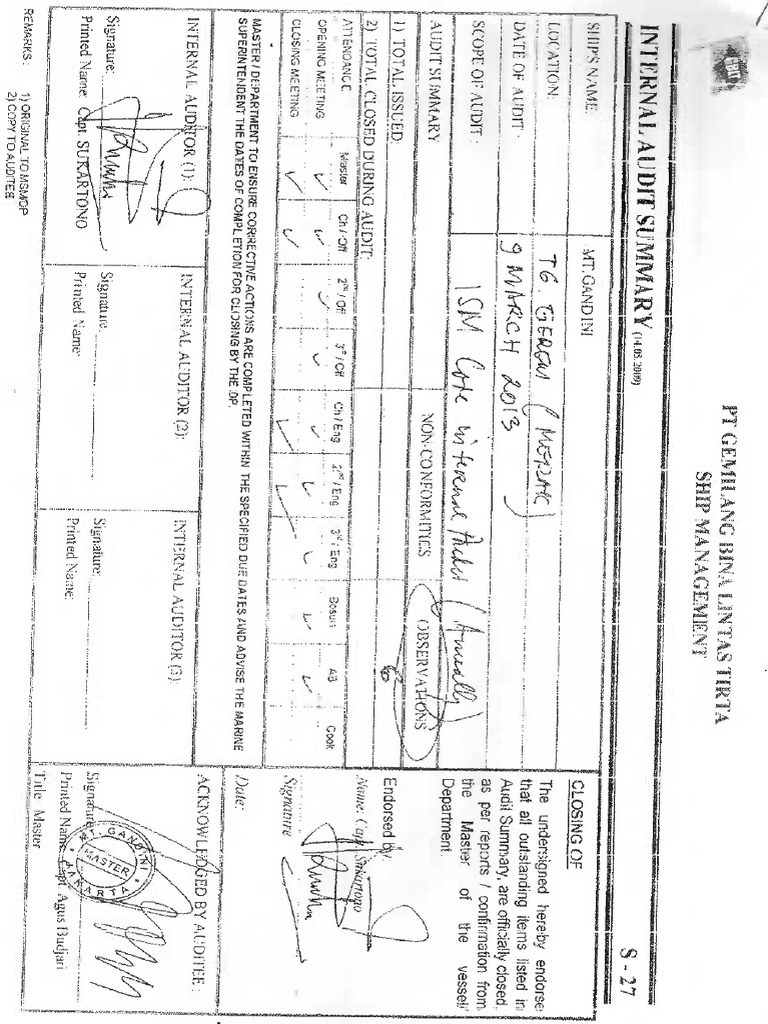 GBLT
PT GEMILANG BINA LINTAS TIRTA
SHIP MANAGEMENT
INTERNAL AUDIT SUMMARY (14.08.2009)
S - 27
SHIP'S NAME: MT.GANDINI
LOCATION: TG GEREM (MERAK)
DATE OF AUDIT : 9 MARCH 2013
SCOPE OF AUDIT : ISM Code internal Audit (Annually)
AUDIT SUMMARY NON-CONFORMITIES OBSERVATIONS
1) TOTAL ISSUED: 6
2) TOTAL CLOSED DURING AUDIT:
ATTENDANCE Master Ch / Off 2nd / Off 3rd / Off Ch / Eng 2nd / Eng 3rd / Eng Bosun AB Cook
OPENING MEETING ✓ ✓ ✓ ✓ ✓ ✓ ✓ ✓ ✓
CLOSING MEETING ✓ ✓ ✓ ✓
MASTER / DEPARTMENT TO ENSURE CORRECTIVE ACTIONS ARE COMPLETED WITHIN THE SPECIFIED DUE DATES AND ADVISE THE MARINE
SUPERINTENDENT THE DATES OF COMPLETION FOR CLOSING BY THE DP.
CLOSING OF
The undersigned hereby endorse
that all outstanding items listed in
Audit Summary, are officially closed,
as per reports / confirmation from
the Master of the vessel/
Department.
Endorsed by:
Name: Capt. Sukartono
Signature
Date:
INTERNAL AUDITOR (1):
Signature:
Printed Name: Capt. SUKARTONO
INTERNAL AUDITOR (2):
Signature:
Printed Name:
INTERNAL AUDITOR (3):
Signature:
Printed Name:
ACKNOWLEDGED BY AUDITEE :
Signature:
Printed Name: Capt. Agus Budjari
Title Master
MT. GANDINI
MASTER
JAKARTA
REMARKS : 1) ORIGINAL TO MSM/DP
2) COPY TO AUDITEE